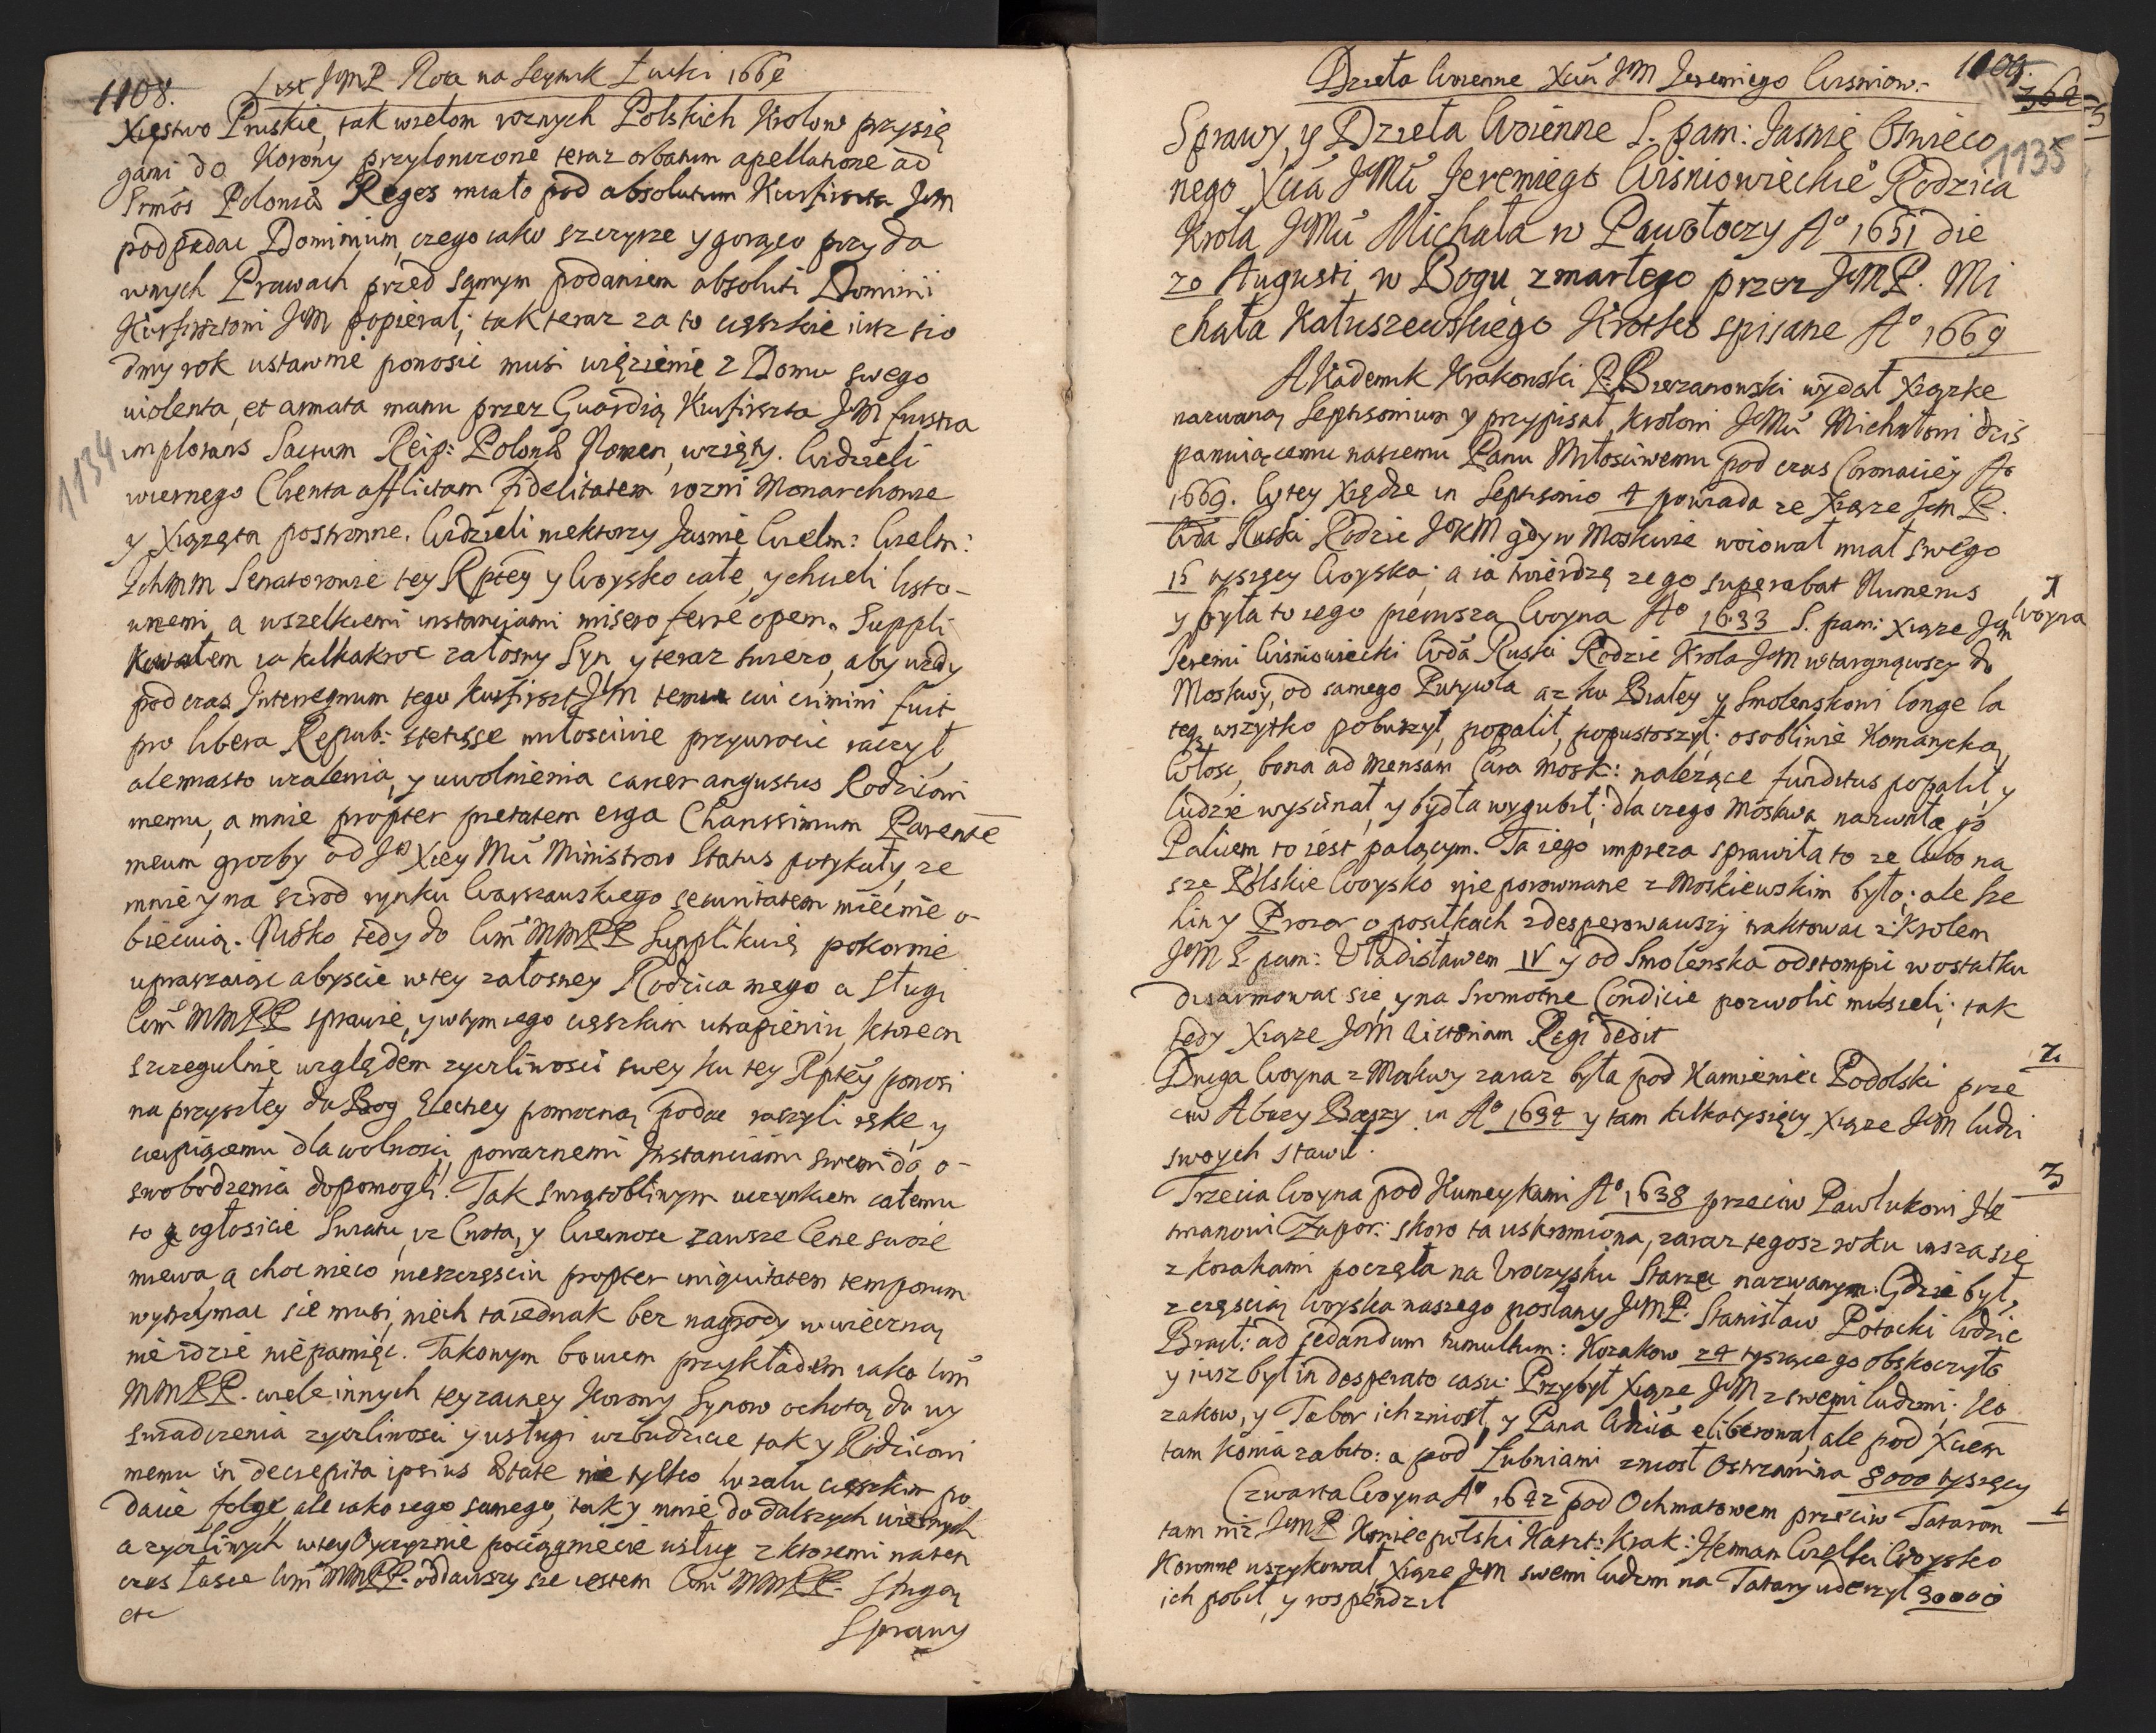 1108.
List JeMP Rota na Seymik Łucki 1669
Xięstwo Pruskie, tak wielom roznych Polskich Krolow przysię
gami do Korony przyłonczone teraz orbatum apellatione ad
Srmos Poloniæ Reges miało pod absolutum Kurfirszta JeM
podpadac Dominium, czego iako szczyrze y gorąco przy da
wnych Prawach przed samym podaniem absoluti Dominii
Kurfirsztowi JeM popierał; tak teraz za to cięszkie iusz sio
dmy rok ustawnie ponosic musi więzienie z Domu swego
violenta, et armata manu przez Guardią Kurfirszta JeM frustra
implorans Sacrum Reip: Polonæ Nomen, wzięty. Widzieli
wiernego Clienta afflictam Fidelitatem rozni Monarchowie
y Xiązęta postronne. Widzieli niektorzy Jasnie Wielm: Wielm:
Ichmm Senatorowie tey Rptey y Woysko całe, y chcieli listo-
wnemi, a wszelkiemi instancjami misero ferre opem. Suppli
kowałem ia kilkakroc załosny Syn y teraz swiezo, aby wzdy
pod czas Interregnum tego Kurfirszt JeM temu cui crimini fuit
pro libera Repub: stetisse miłosciwie przywrocic raczył,
ale miasto uzalenia, y uwolnienia carcer angustus Rodzicowi
memu, a mnie propter pietatem erga Charissimum Parentē
meum grozby od Jo Xcey Mci Ministrow Status potykały, ze
mnie y na szrod rynku Warszawskiego securitatem miec nie o-
biecuią. Nisko tedy do Wm MMPP Supplikuię pokornie
upraszaiąc abyscie w tey załosney Rodzica mego a Sługi
Wm MMPP sprawie, y w tym iego cięszkim utrapieniu, ktore on
szczegulnie względem zyczliwosci swey ku tey Rptey ponosi
na przyszłey da Bog Elecyey pomocną podac raczyli rękę, y
cierpiącemu dla wolnosci, powaznemi Instanciami swemi do o-
swobodzenia dopomogli. Tak swiątobliwym uczynkiem całemu
to ogłosicie Swiatu, iz Cnota, y Wiernosc zawsze Cenę swoię
miewa, a choc nieco nieszczęscia propter iniquitatem temporum
wytrzymac się musi, niech ta iednak bez nagrody w wieczną
nie idzie niepamięc. Takowym bowiem przykładem iako Wm
MMPP. wiele innych tey zacney Korony Synow ochotą do wy
swiadczenia zyczliwosci y usługi wzbudzicie tak y Rodzicowi
memu in decrepita ipsius ætate nie tylko w zalu cięszkim po
dacie folgę, ale iako iego samego, tak y mnie do dalszych wiernych
a zyczliwych w tey Oyczyznie pociągniecie usług z ktoremi na ten
czas Łasce Wm MMPP. oddawszy się iestem Wm MMPP. Sługą
etc
Sprawy
1134
Dzieła Woienne Xcia JeM Jeremiego Wisniow:
1109.
1135
Sprawy, y Dzieła Woienne S. pam: Jasnie Oswieco
nego Xcia JeMci Jeremiego Wisniowieckiego Rodzica
Krola JeMci Michała w Pawołoczy Ao 1651 die
20 Augusti w Bogu zmarłego przez JeMP. Mi
chała Kałuszewskiego Krotko spisane Ao 1669
Akademik Krakowski P. Brezanowski wydał Xiązkę
nazwaną Septisonium y przypisał Krolowi JeMci Michałowi dzis
panuiącemu naszemu Panu Miłosciwemu pod czas Coronaciey Ao
1669. W tey Xiędze in Septisonio 4 powiada ze Xiąze JeM P.
Wda Ruski Rodzic JoKM gdy w Moskwie woiował miał swego
15 tysięcy Woyska; a ia twierdzę ze go superabat Numerus
y była to iego pierwsza Woyna Ao 1633 S. pam: Xiąze JeM
1 Woyna
Jeremi Wisniowiecki Wda Ruski Rodzic Krola JeM wtargnąwszy do
Moskwy, od samego Putywla az ku Białey y Smolenskowi longe la
teq wszytko poburzył, popalił, popustoszył; osobliwie Komarycką
Włosc, bona ad mensam Cara Mosk: nalezące funditus popalił, y
ludzie wyscinał, y bydła wygubił; dla czego Moskwa nazwała go
Palicem, to iest palącym. Ta iego impreza sprawiła to ze lubo na
sze Polskie Woysko nie porownane z Moskiewskim było; ale Sze
hin y Prozor o posiłkach zdesperowawszy traktowac z Krolem
JeM S pam: Vładisławem IV y od Smolenska odstompic w ostatku
disarmowac się, y na sromotne Condicie pozwolic musieli; tak
tedy Xiąze JeM victoriam Regi dedit
2.
Druga Woyna z Moskwy zaraz była pod Kamieniec Podolski prze
ciw Abazy Baszy in Ao 1634 y tam kilka tysięcy Xiąze JeM ludzi
swoych stawił.
3
Trzecia Woyna pod Kumeykami Ao 1638 przeciw Pawlukowi He
tmanowi Zapor: skoro ta uskromiona, zaraz tegosz roku insza się
z Kozakami poczęła na Uroczysku Starzec nazwanym. Gdzie był
z częscią Woyska naszego posłany JeMP. Stanisław Potocki Wdzic
Bracł: ad sedandum tumultum: Kozakow 24 tysiące go obskoczyło
y iusz był in desperato casu. Przybył Xiąze JeM z swemi ludzmi; Ko
zakow, y Tabor ich zniosł, y Pana Wdzica eliberował, ale pod Xciem
tam konia zabito: a pod Łubniami zniosł Ostrzanina 8000 tysięcy
4
Czwarta Woyna Ao 1642 pod Ochmatowem przeciw Tatarom
tam niz JeMP Koniecpolski Kaszt: Krak: Hetman Wielki Woysko
Koronne uszykował, Xiąze JeM swemi ludzmi na Tatary uderzył 30000
ich pobił, y rospendził